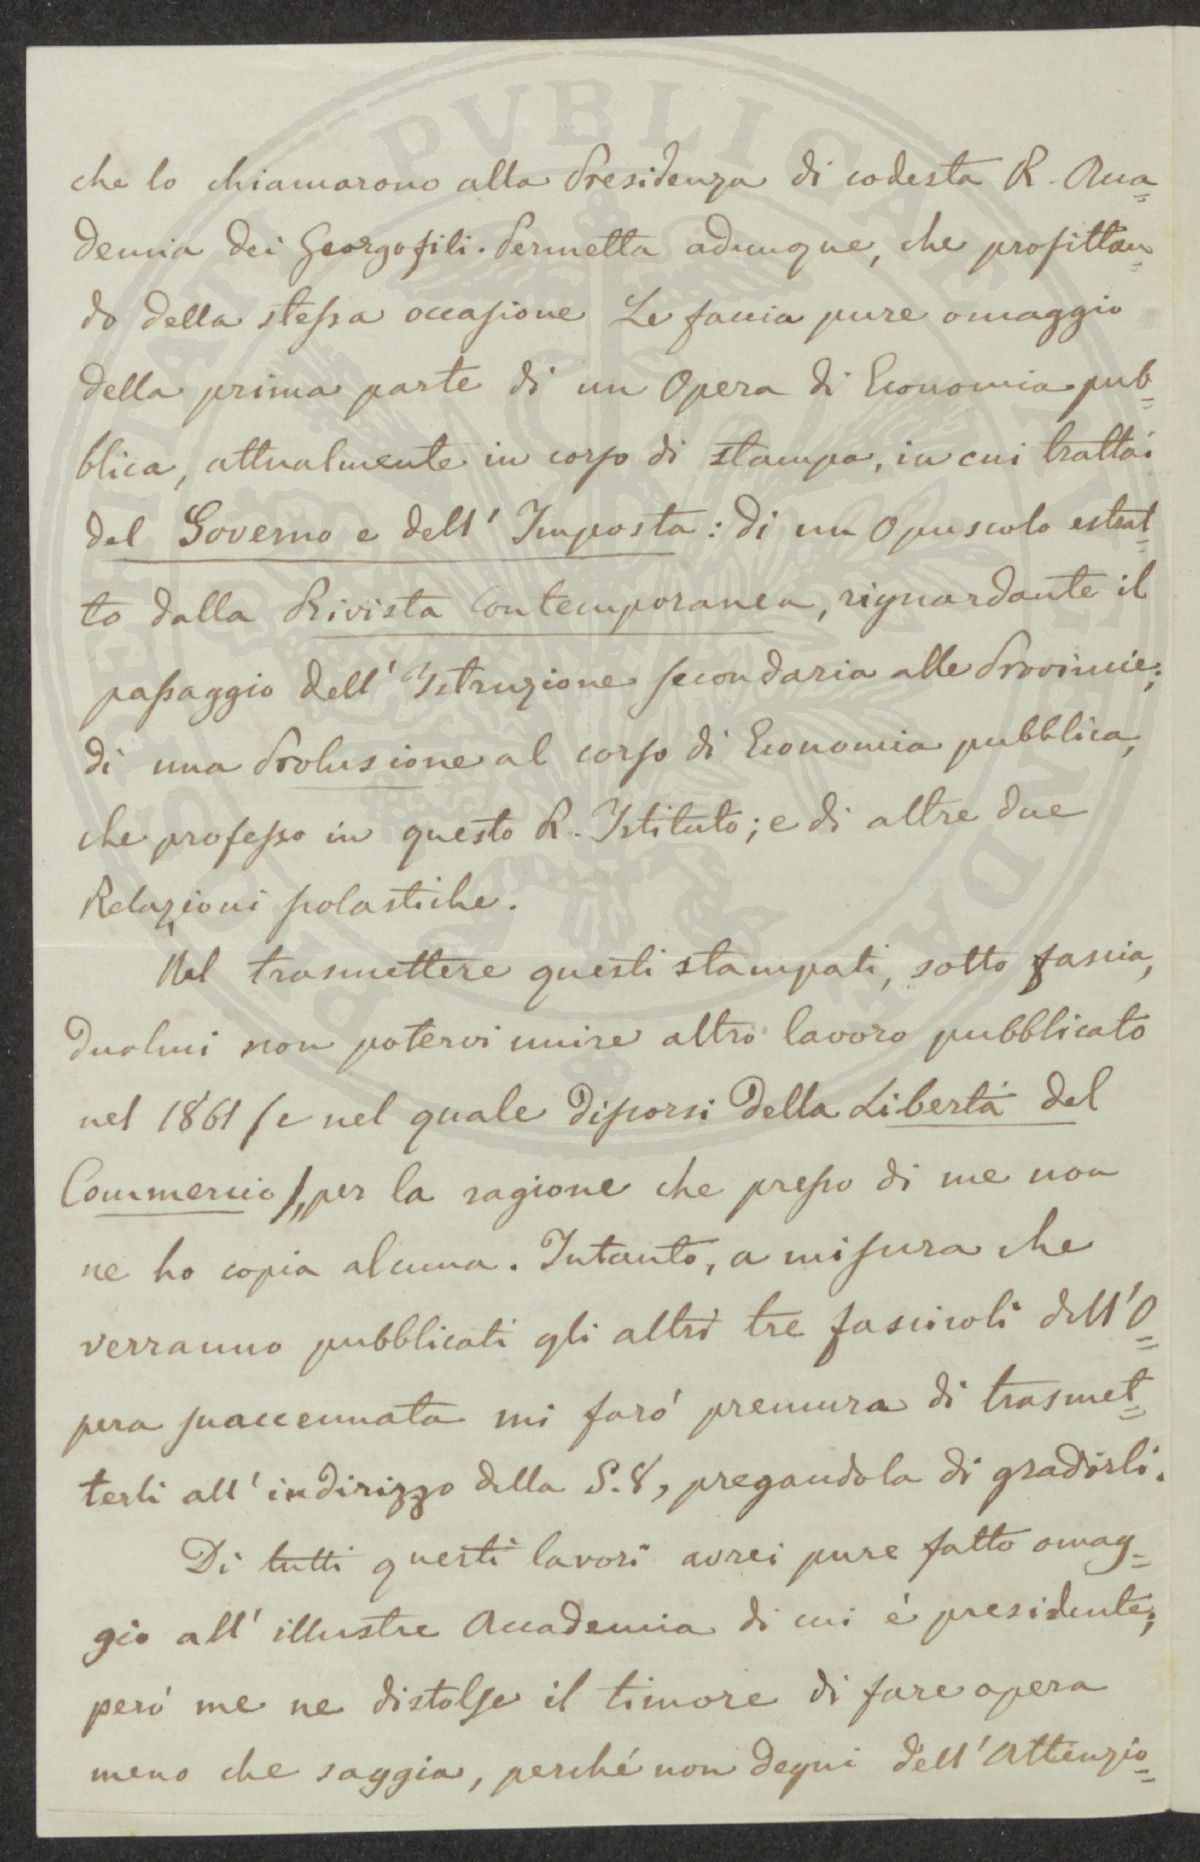 che lo chiamarono alla Presidenza di codesta R. Acca=
demia dei Georgofili. Permetta adunque, che profittan=
do della stessa occasione Le faccia pure omaggio
della prima parte di un Opera di Economia pub=
blica, attualmente in corso di stampa, in cui trattai
del Governo e dell' Imposta: di un Opuscolo estrat=
to dalla Rivista Contemporanea, riguardante il
passaggio dell' Istruzione secondaria alle Provincie;
di una Prolusione al corso di Economia pubblica,
che professo in questo R. Istituto; e di altre due
Relazioni scolastiche.
Nel trasmettere questi stampati, sotto fascia,
duolmi non potervi unire altro lavoro pubblicato
nel 1861 (e nel quale discorsi della Libertá del
Commercio), per la ragione che presso di me non
ne ho copia alcuna. Intanto, a misura che
verranno pubblicati gli altri tre fascicoli dell' O=
pera suaccennata mi faró premura di trasmet=
terli all' indirizzo della S. V, pregandola di gradirli.
Di tutti questi lavori avrei pure fatto omag=
gio all' illustre Accademia di cui é presidente;
peró me ne distolse il timore di fare opera
meno che saggia, perché non degni dell' Attenzio=
PVBLICAE VTILITATI